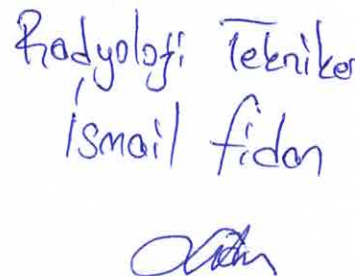 Radyoloji Tekniker
İsmail fidan